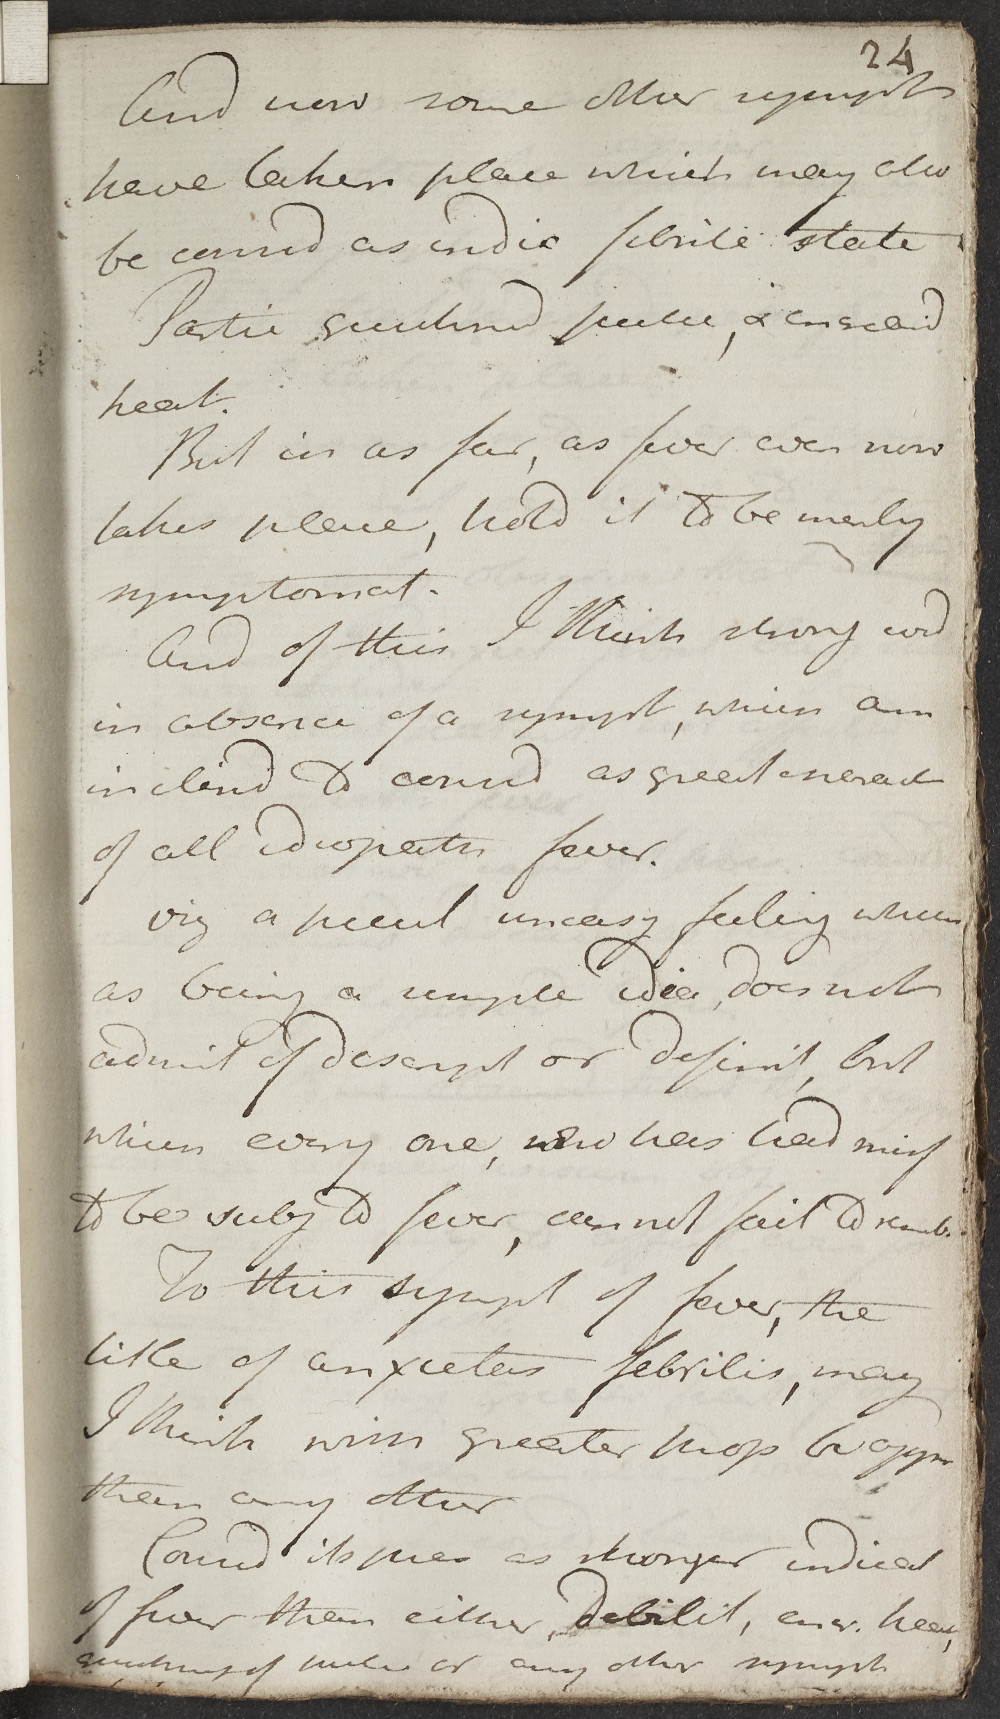 24
And now some other sympts
have taken place which may also
be consid as indic febrile state
Partic quickned pulse, & encreasd
heat.
But in as far, as fever even now
takes place, hold it to be merely
symptomat.
And of this I think strong evid
in absence of a sympt, which am
inclind to consid as great charact
of all idiopath fever.
viz a pecul uneasy feeling which
as being a simple idea, does not
admit of descript or definit, but
which every one, who has had misf
to be subj to fever, can not fail to remb.
To this sympt of fever, the
title of anxietas febrilis, may
I think with greater prop be appr
than any other
Consid its pres as stronger indicat
of fever than either, debilit, encr. heat,
quickness of pulse or any other symptom